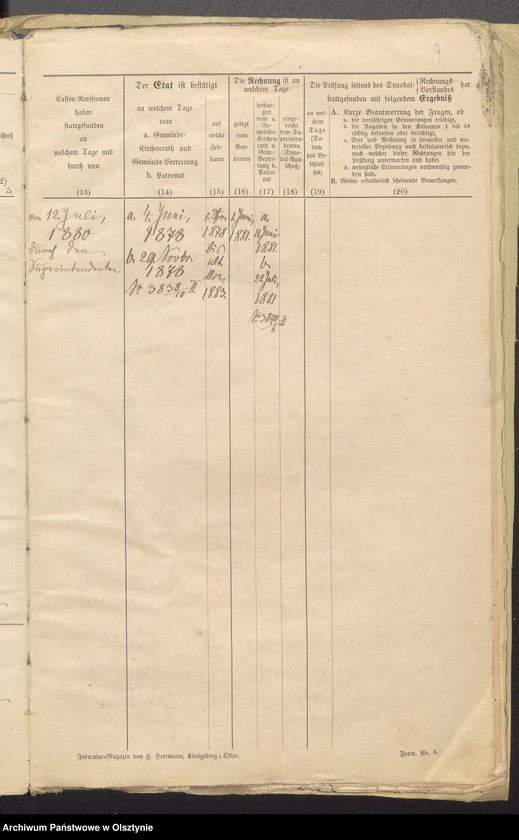 9
Kassen-Revisionen
haben
stattgefunden
an
welchem Tage und
durch wen
(13)
Der Etat ist bestätigt
an welchem Tage
vom
a. Gemeinde-
Kirchenrath und
Gemeinde-Vertretung
b. Patronat
(14)
auf
welche
Zeit-
dauer
(15)
Die Rechnung ist an
welchem Tage
gelegt
vom
Ren-
danten
(16)
dechar-
girt
vom a.
Ge-
meinde-
Kirchen-
rath u.
Gem.-
Vertre-
tung b.
Patro-
nat
(17)
einge-
reicht
dem Su-
perinten-
denten
(Syno-
dal-Aus-
schuß)
(18)
Die Prüfung seitens des Synodal- Rechnungs- Vorstandes hat
stattgefunden mit folgendem Ergebniß
an wel-
chem
Tage
(Da-
tum
des Be-
schlus-
ses)
(19)
A. Kurze Beantwortung der Fragen, ob
a. die vorjährigen Erinnerungen erledigt,
b. die Angaben in den Kolonnen 1 bis 18
richtig befunden oder berichtigt,
c. Etat und Rechnung in formeller und ma-
terieller Beziehung auch kalkulatorisch bezw.
nach welcher dieser Richtungen hin der
Prüfung unterworfen und dabei
d. wesentliche Erinnerungen nothwendig gewor-
den sind.
B. Weiter erforderlich scheinende Bemerkungen.
(20)
am 12. Juli,
1880
durch den
Superintendenten
a. 4. Juni,
1878
b. 29. Novbr
1878
1878
bis
ult.
1883.
1. Juni,
1881.
a.
Juni
1881.
b.
22 Juli,
1881
Formular-Magazin von H. Herrmann, Königsberg i. Ostpr.
Form. Nr. 6.
Archiwum Państwowe w Olsztynie